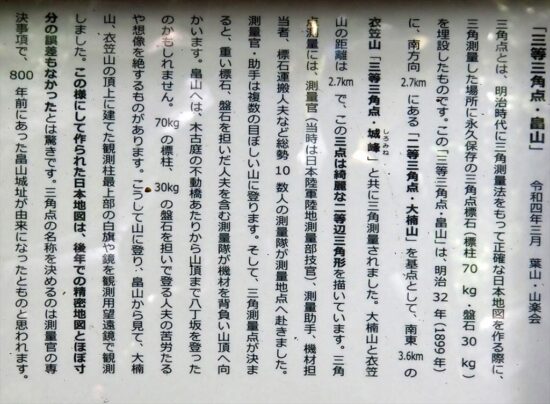 「三等三角点・畠山」　令和四年三月　葉山・山楽会
三角点とは、明治時代に三角測量法をもって正確な日本地図を作る際に、
三角測量した場所に永久保存の三角点標石（標柱 70 kg・盤石 30 kg）
を埋設したものです。この「三等三角点・畠山」は、明治 32 年（1899 年）
に、南方向 2.7km にある「二等三角点・大楠山」を基点として、南東 3.6km の
衣笠山「三等三角点・城峰（しろみね）」と共に三角測量されました。大楠山と衣笠
山の距離は 2.7km で、この三点は綺麗な二等辺三角形を描いています。三角
点測量には、測量官（当時は日本陸軍陸地測量部技官）、測量助手、機材担
当者、標石運搬人夫など総勢 10 数人の測量隊が測量地点へ赴きました。
測量官・助手は複数の目ぼしい山に登ります。そして、三角測量点が決ま
ると、重い標石、盤石を担いだ人夫を含む測量隊が機材を背負い山頂へ向
かいます。畠山へは、木古庭の不動橋あたりから山頂まで八丁坂を登った
のかもしれません。70kg の標柱、30kg の盤石を担いで登る人夫の苦労たる
や想像を絶するものがあります。こうして山に登り、畠山から見て、大楠
山、衣笠山の頂上に建てた観測柱最上部の白旗や鏡を観測用望遠鏡で観測
しました。この様にして作られた日本地図は、後年での精密地図とほぼ寸
分の誤差もなかったとは驚きです。三角点の名称を決めるのは測量官の専
決事項で、800 年前にあった畠山城址が由来になったものと思われます。